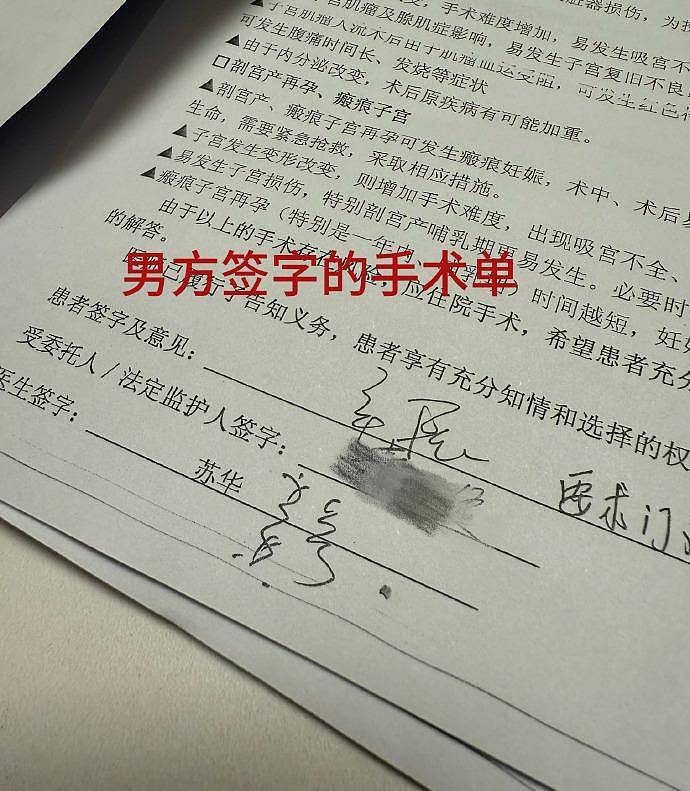 ，手术难度增加，易发生吸宫不
宫肌瘤及腺肌症影响，易发生子宫复旧不良
可发生腹痛时间长、发烧等症状
▲由于内分泌改变，术后原疾病有可能加重。
□剖宫产再孕、瘢痕子宫
▲剖宫产、瘢痕子宫再孕可发生瘢痕妊娠，术中、术后
生命，需要紧急抢救，采取相应措施。
▲子宫发生变形改变，则增加手术难度，出现吸宫不全、
▲易发生子宫损伤，特别剖宫产哺乳期更易发生。必要时
▲瘢痕子宫再孕（特别是一年内，时间越短，妊娠
由于以上的手术存在风险，应住院手术，希望患者充分
的解答。
男方签字的手术单
已履行了告知义务，患者享有充分知情和选择的权
患者签字及意见：
受委托人/法定监护人签字：
要求门
医生签字：
苏华